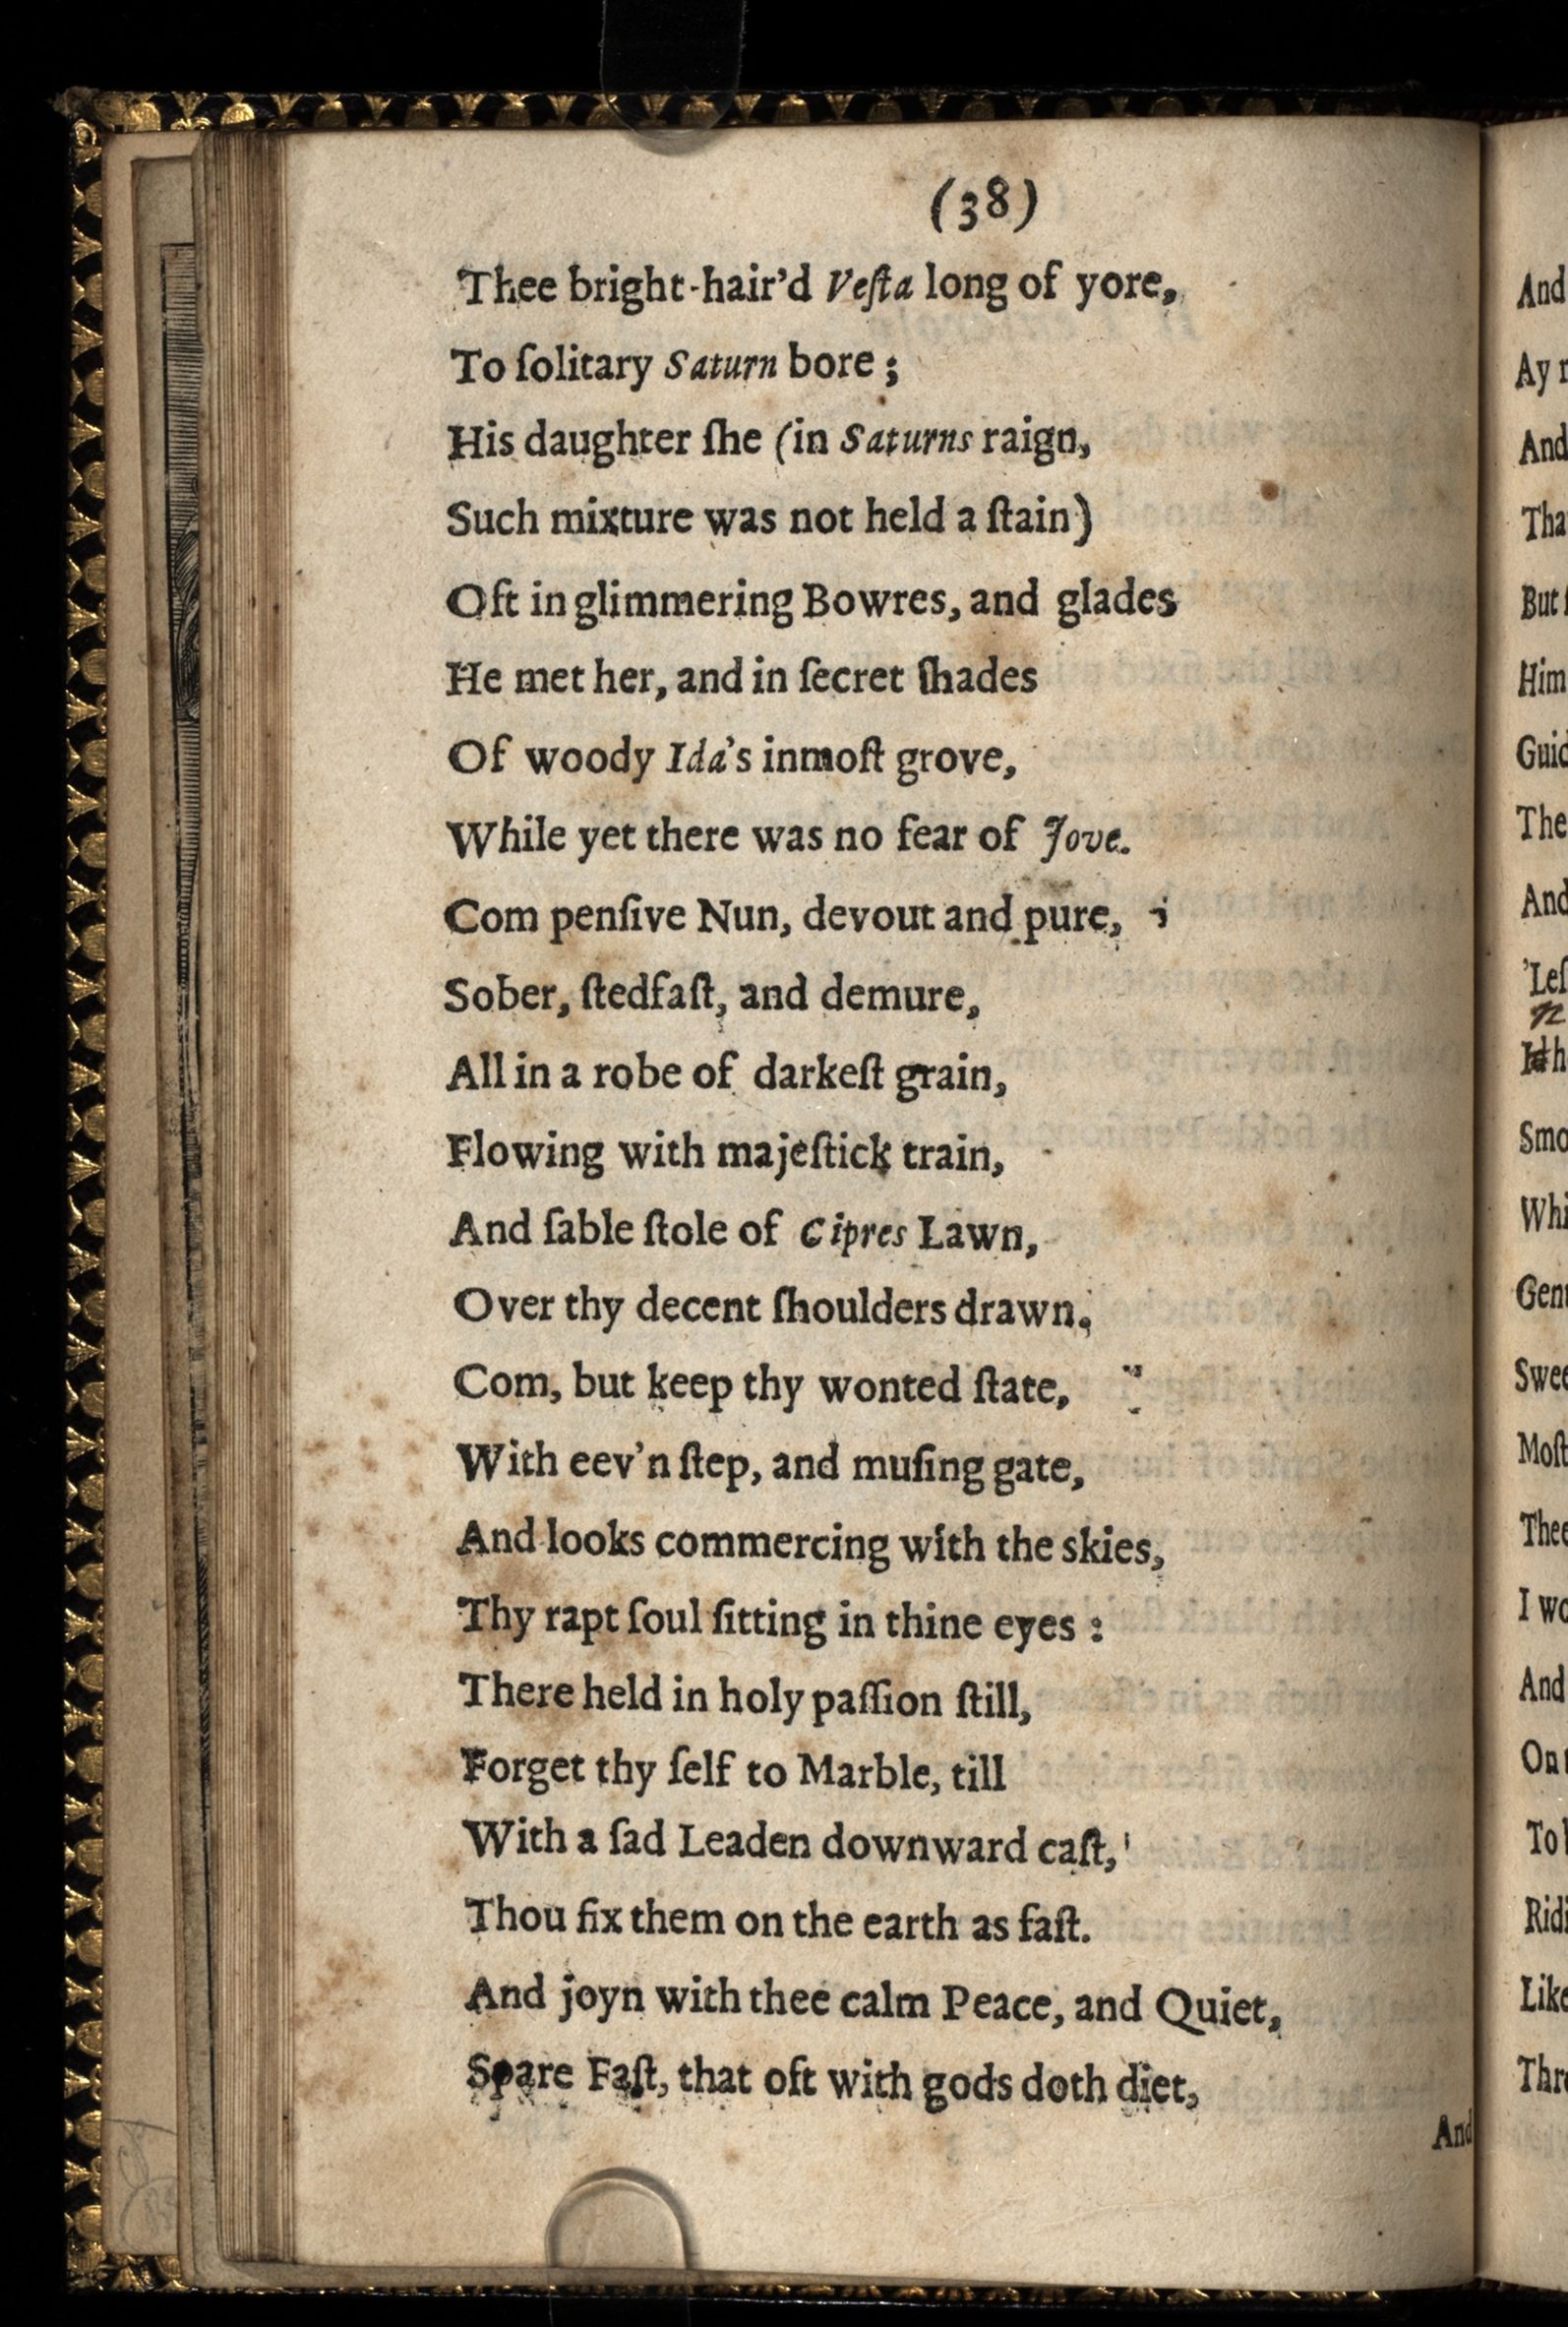 (38)
Thee bright-hair'd Veſta long of yore,
To ſolitary Saturn bore;
His daughter ſhe (in Saturns raign,
Such mixture was not held a ſtain)
Oft in glimmering Bowres, and glades
He met her, and in ſecret ſhades
Of woody Ida's inmoſt grove,
While yet there was no fear of Jove.
Com penſive Nun, devout and pure,
Sober, ſtedfaſt, and demure,
All in a robe of darkeſt grain,
Flowing with majeſtick train,
And ſable ſtole of Cipres Lawn,
Over thy decent ſhoulders drawn.
Com, but keep thy wonted ſtate,
With eev'n ſtep, and muſing gate,
And looks commercing with the skies,
Thy rapt ſoul ſitting in thine eyes:
There held in holy paſſion ſtill,
Forget thy ſelf to Marble, till
With a ſad Leaden downward caſt,
Thou fix them on the earth as faſt.
And joyn with thee calm Peace, and Quiet,
Spare Faſt, that oft with gods doth diet,
And
And
Ay
And
But
Him
The
And
And